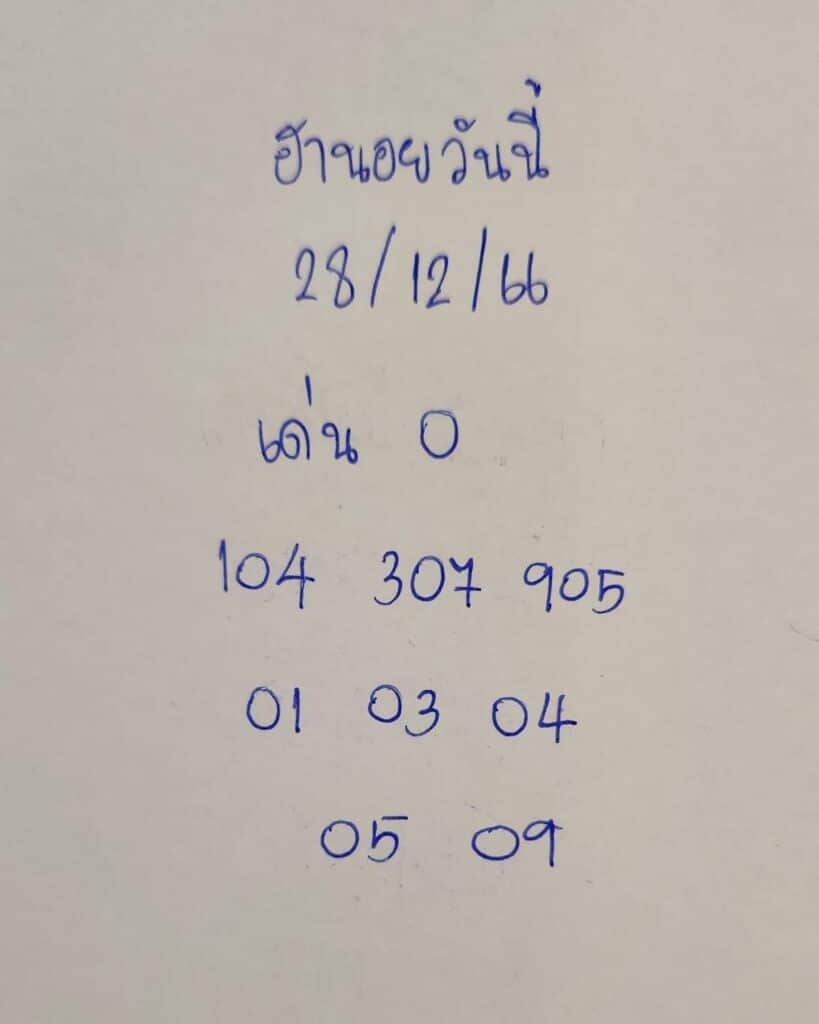 ฮานอยวันนี้
28/12/66
เด่น 0
104 307 905
01 03 04
05 09